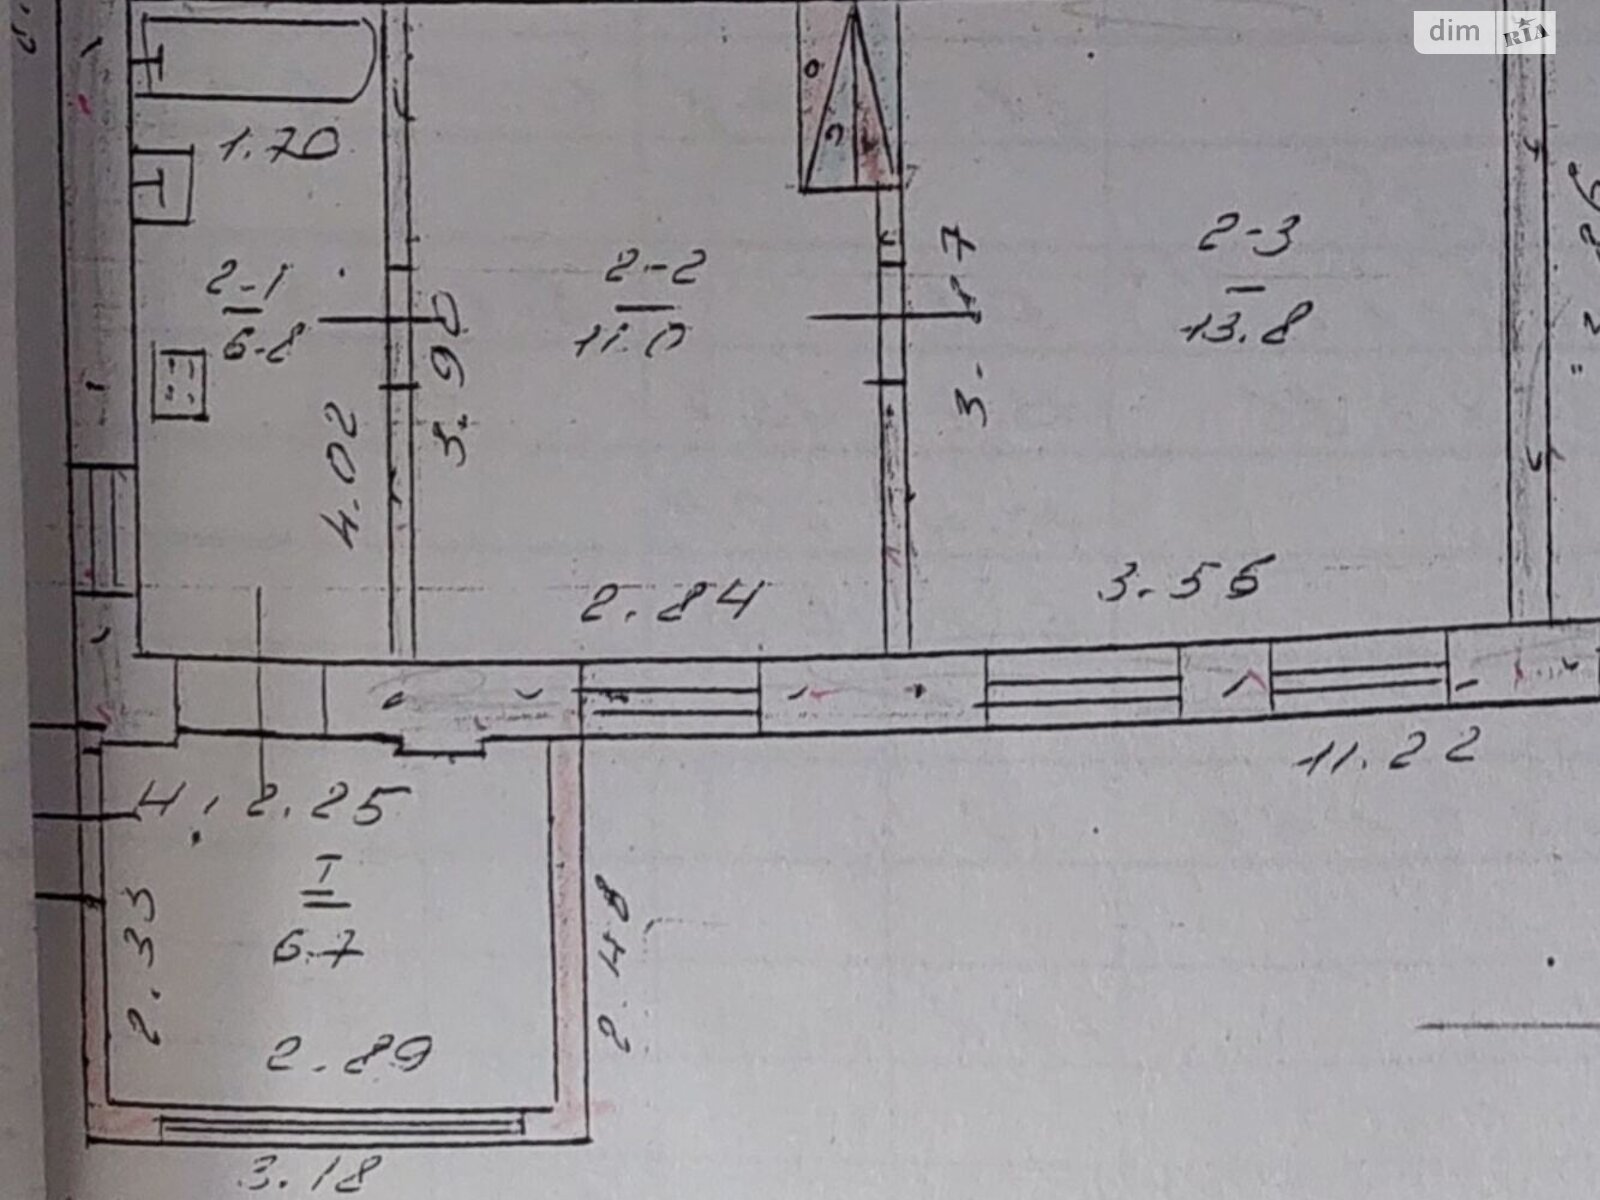 dim RIA
1.70
2-1
6.8
2-2
11.0
2-3
13.8
4.02
3.90
2.84
3.55
11.22
2.25
I
6.7
2.33
2.48
2.89
3.18